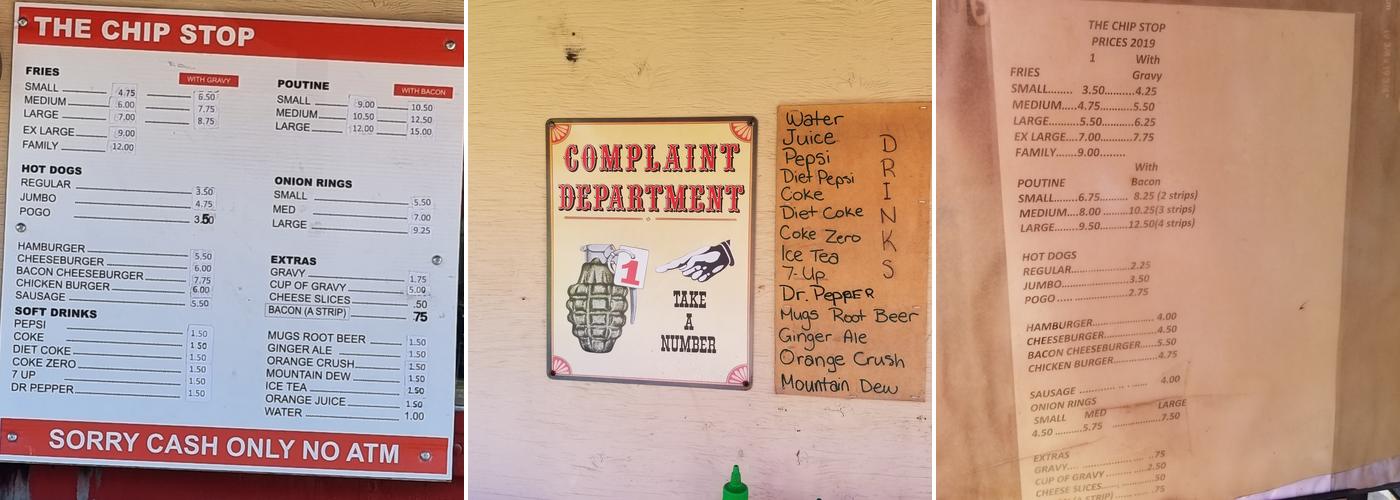 THE CHIP STOP
FRIES
WITH GRAVY
SMALL 4.75 6.50
MEDIUM 6.00 7.75
LARGE 7.00 8.75
EX LARGE 9.00
FAMILY 12.00
HOT DOGS
REGULAR 3.50
JUMBO 4.75
POGO 3.50
HAMBURGER 5.50
CHEESEBURGER 6.00
BACON CHEESEBURGER 7.75
CHICKEN BURGER 6.00
SAUSAGE 5.50
SOFT DRINKS
PEPSI 1.50
COKE 1.50
DIET COKE 1.50
COKE ZERO 1.50
7 UP 1.50
DR PEPPER 1.50
POUTINE
WITH BACON
SMALL 9.00 10.50
MEDIUM 10.50 12.50
LARGE 12.00 15.00
ONION RINGS
SMALL 5.50
MED 7.00
LARGE 9.25
EXTRAS
GRAVY 1.75
CUP OF GRAVY 5.00
CHEESE SLICES .50
BACON (A STRIP) .75
MUGS ROOT BEER 1.50
GINGER ALE 1.50
ORANGE CRUSH 1.50
MOUNTAIN DEW 1.50
ICE TEA 1.50
ORANGE JUICE 1.50
WATER 1.00
SORRY CASH ONLY NO ATM
COMPLAINT
DEPARTMENT
1
TAKE
A
NUMBER
Water
Juice
Pepsi
Diet Pepsi
Coke
Diet Coke
Coke Zero
Ice Tea
7-Up
Dr. Pepper
Mugs Root Beer
Ginger Ale
Orange Crush
Mountain Dew
DRINKS
THE CHIP STOP
PRICES 2019
1 With
FRIES Gravy
SMALL....... 3.50......4.25
MEDIUM....4.75........5.50
LARGE........5.50.........6.25
EX LARGE....7.00.......7.75
FAMILY......9.00.......
With
POUTINE Bacon
SMALL.......6.75........ 8.25 (2 strips)
MEDIUM....8.00 .......10.25(3 strips)
LARGE.......9.50.........12.50(4 strips)
HOT DOGS
REGULAR.....................2.25
JUMBO........................3.50
POGO ..... ..................2.75
HAMBURGER..................... 4.00
CHEESEBURGER...................4.50
BACON CHEESEBURGER......5.50
CHICKEN BURGER..............4.75
SAUSAGE ............ .. .. ....... 4.00
ONION RINGS
SMALL MED LARGE
4.50 .......5.75 ...................7.50
EXTRAS ..75
GRAVY.... ............................2.50
CUP OF GRAVY ....................50
CHEESE SLICES.... .................75